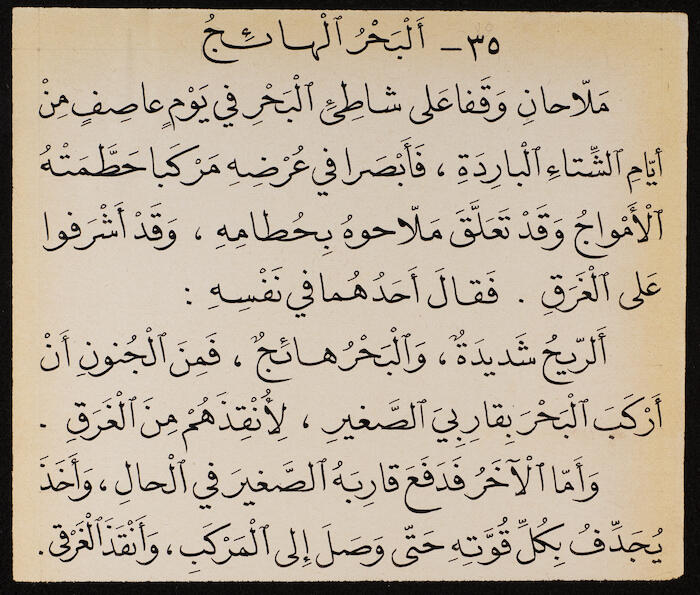 ٣٥ - أَلْبَحْرُ ٱلْهائِجُ
مَلّاحانِ وَقَفا عَلى شاطِئِ ٱلْبَحْرِ في يَوْمٍ عاصِفٍ مِنْ
أَيّامِ ٱلشِّتاءِ ٱلْبارِدَةِ ، فَأَبْصَرا في عُرْضِهِ مَرْكَبا حَطَّمَتْهُ
ٱلْأَمْواجُ وَقَدْ تَعَلَّقَ مَلّاحوهُ بِحُطامِهِ ، وَقَدْ أَشْرَفوا
عَلى ٱلْغَرَقِ . فَقالَ أَحَدُهُما في نَفْسِهِ :
أَلرّيحُ شَديدَةٌ ، وَٱلْبَحْرُ هائِجٌ ، فَمِنَ ٱلْجُنونِ أَنْ
أَرْكَبَ ٱلْبَحْرَ بِقارِبِيَ ٱلصَّغيرِ ، لِأُنْقِذَهُمْ مِنَ ٱلْغَرَقِ .
وَأَمّا ٱلْآخَرُ فَدَفَعَ قارِبَهُ ٱلصَّغيرَ في ٱلْحالِ ، وَأَخَذَ
يُجَدِّفُ بِكُلِّ قُوَّتِهِ حَتّى وَصَلَ إِلى ٱلْمَرْكَبِ ، وَأَنْقَذَ ٱلْغَرْقى .